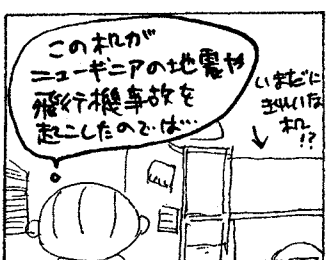 この机が
ニューギニアの地震や
飛行機事故を
起こしたのでは…
いまだに
きれいな
机!?